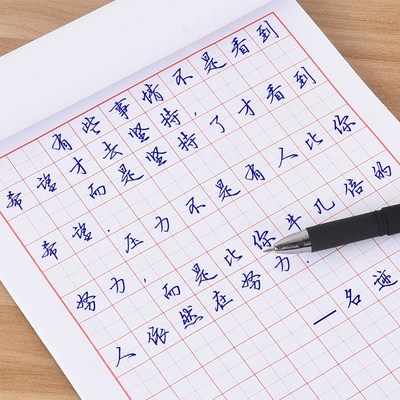 有些事情不是看到
希望才去坚持,而是坚持了才看到
希望.压力不是有人比你
努力,而是比你牛几倍的
人依然在努力.
—名迹